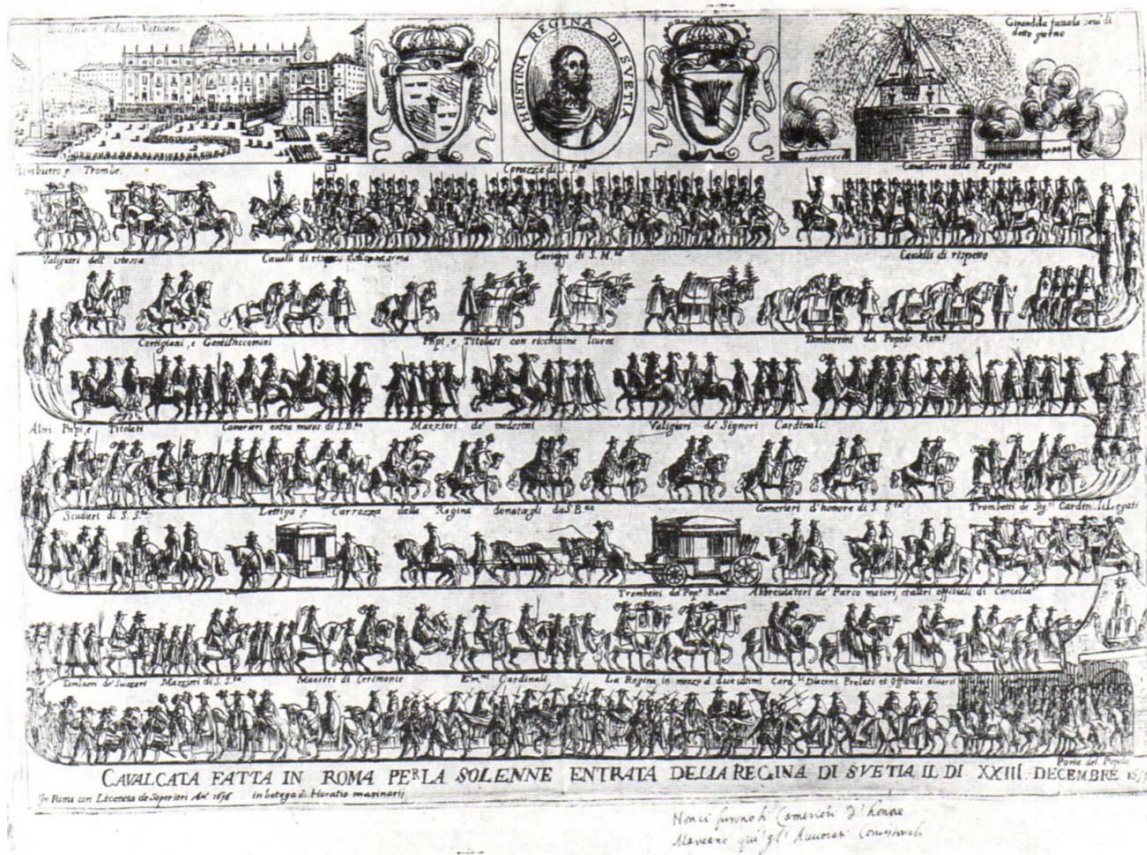 Palazzo Vaticano
CHRISTINA REGINA DI SVETIA
Girandola fatta la sera di
detto giorno
Trombe
Corazze di S. Stà
Cavalleria della Regina
Valigieri dell istessa
Cavalli di rispetto
Cariaggi di S. M.tà
Cavalli di rispetto
Cortigiani, e Gentilhuomini
Pñpi, e Titolati con ricchissime livree
Tamburini del Popolo Rom.º
Altri Pñpi, e Titolati
Camerieri extra muros di S. B.ne
Mazzieri de medesimi
Valigieri de Signori Cardinali
Scudieri di S. S.tà
Lettiga e Carrozza della Regina donategli da S B.ne
Camerieri d'honore di S. S.tà
Trombetti de Sig.ri Cardin.li Legati
Trombetti del Pop.º Rom.º
Abbreviatori de Parco maiori, et altri officiali di Cancella.ª
Mazzieri di S. S.tà
Maestri di Cerimonie
Em.mi Cardinali
La Regina in mezzo à due ultimi Card.li Diaconi Prelati et Officiali diversi
Porta del Popolo
CAVALCATA FATTA IN ROMA PER LA SOLENNE ENTRATA DELLA REGINA DI SVETIA IL DI XXIII DECEMBRE
In Roma con Licenza de Superiori An.º 1656 in botega di Horatio marinarij
Non ci furono li Camerieri d'honore